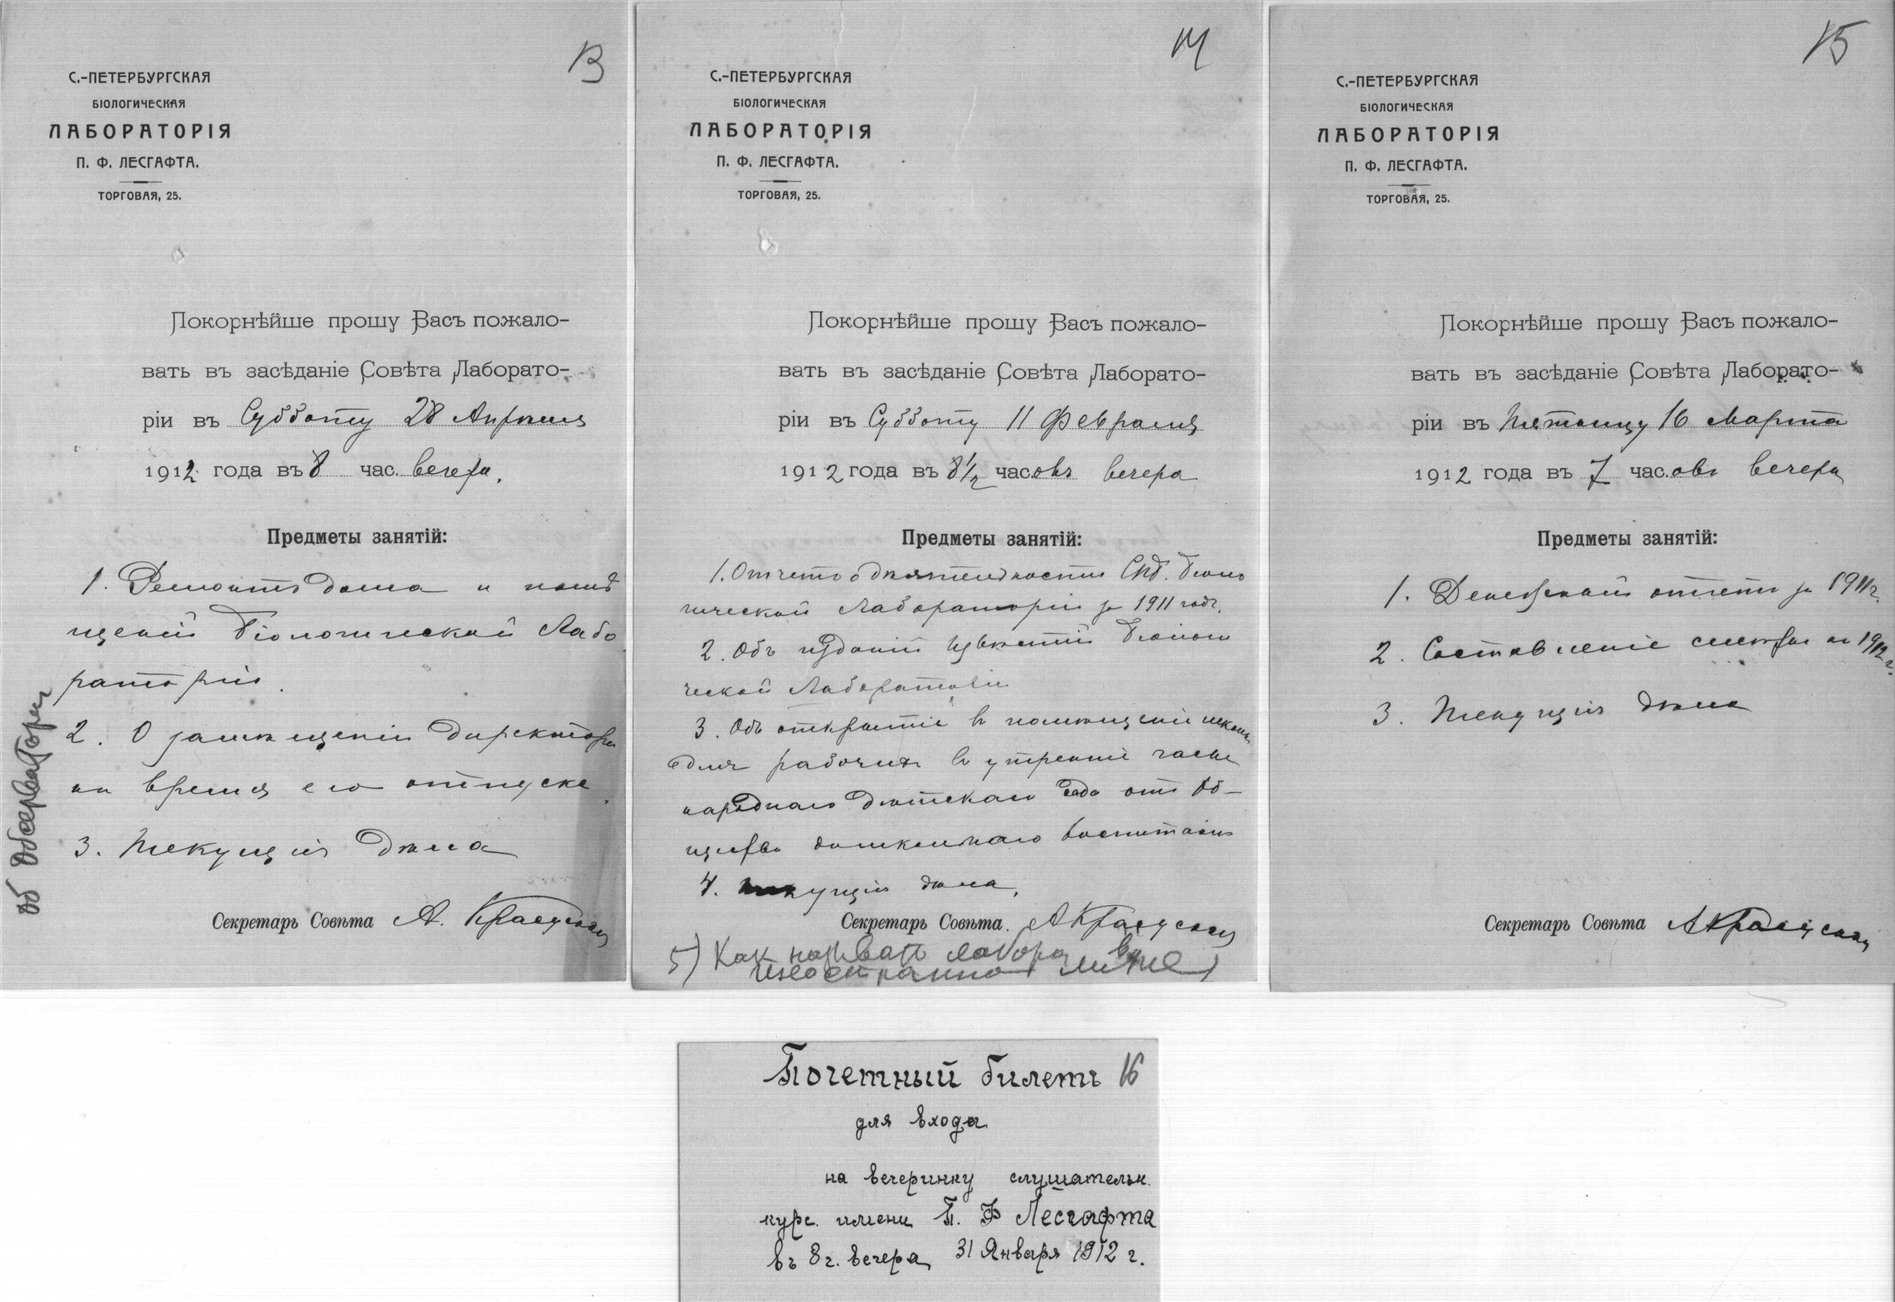 13
С.-ПЕТЕРБУРГСКАЯ
БІОЛОГИЧЕСКАЯ
ЛАБОРАТОРІЯ
П. Ф. ЛЕСГАФТА.
ТОРГОВАЯ, 25.
Покорнѣйше прошу Васъ пожало-
вать въ засѣданіе Совѣта Лаборато-
ріи въ Субботу 28 Апрѣля
1912 года въ 8 час. вечера.
Предметы занятій:
1. Ремонтъ дома и помѣ
щеній Біологической Лабо
раторіи.
2. О замѣщеніи директора
на время его отпуска.
3. Текущія дѣла
Об Обсерватори
Секретарь Совѣта А. Красуская
14
С.-ПЕТЕРБУРГСКАЯ
БІОЛОГИЧЕСКАЯ
ЛАБОРАТОРІЯ
П. Ф. ЛЕСГАФТА.
ТОРГОВАЯ, 25.
Покорнѣйше прошу Васъ пожало-
вать въ засѣданіе Совѣта Лаборато-
ріи въ Субботу 11 Февраля
1912 года въ 8½ часовъ вечера
Предметы занятій:
1. Отчетъ о дѣятельности СПб. Біоло
гической Лабораторіи за 1911 годъ.
2. Объ изданіи Извѣстій Біологи
ческой Лабораторіи
3. Объ открытіи въ помѣщеніи школы
для рабочихъ въ утренніе часы
народнаго дѣтскаго сада отъ Об-
щества дошкольнаго воспитанія
4. Текущія дѣла.
Секретарь Совѣта. А Красуская
5) Как называть лабора в
иностранно
15
С.-ПЕТЕРБУРГСКАЯ
БІОЛОГИЧЕСКАЯ
ЛАБОРАТОРІЯ
П. Ф. ЛЕСГАФТА.
ТОРГОВАЯ, 25.
Покорнѣйше прошу Васъ пожало-
вать въ засѣданіе Совѣта Лаборато-
ріи въ Пятницу 16 Марта
1912 года въ 7 часовъ вечера
Предметы занятій:
1. Денежный отчетъ за 1911 г.
2. Составленіе смѣты на 1912 г.
3. Текущія дѣла
Секретарь Совѣта А Красуская
Почетный билетъ 16
для входа
на вечеринку слушательн.
курс. имени П. Ф Лесгафта
въ 8 ч. вечера 31 Января 1912 г.